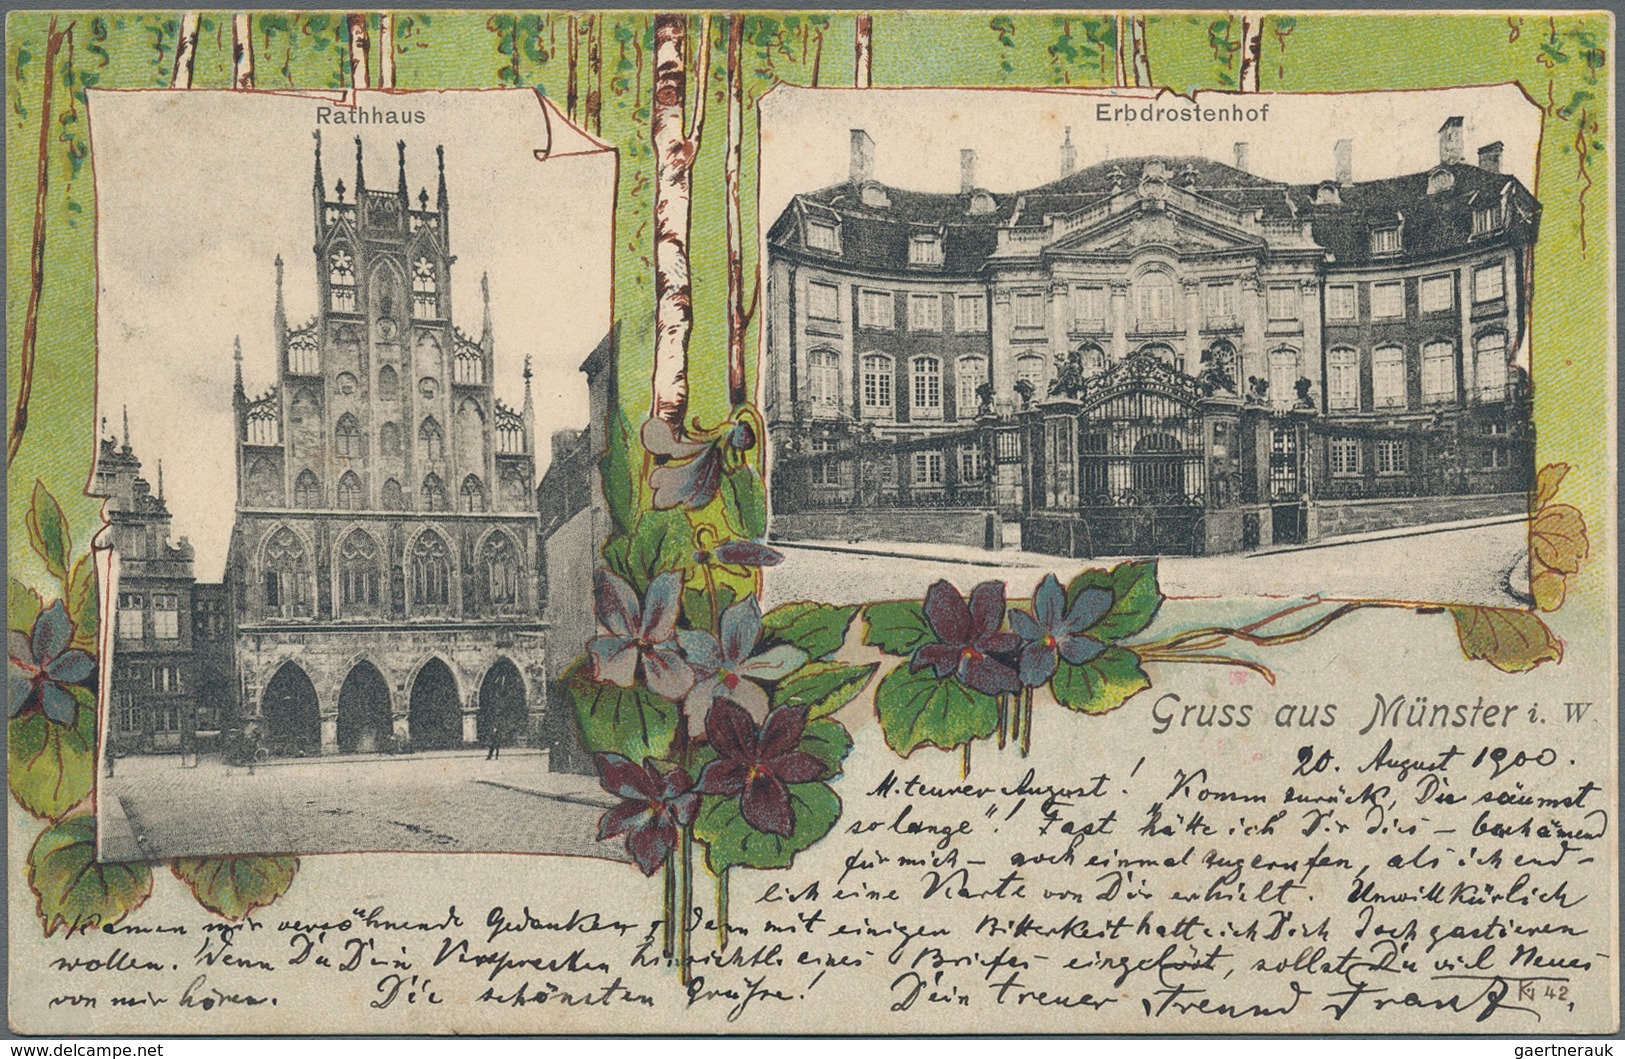 Rathhaus
Erbdrostenhof
Gruss aus Münster i. W.
20. August 1900.
M. teurer August! Komm zurück, Du säumst
so lange"! Fast hätte ich Dir dies – beschämend
für mich – noch einmal zugerufen, als ich end-
lich eine Karte von Dir erhielt. Unwillkürlich
kamen mir versöhnende Gedanken, denn mit einigen Bitterkeit hatte ich Dich doch gastieren
wollen. Wenn Du Dein Versprechen hinsichtl. eines Briefes eingelöst, sollst Du viel Neues
von mir hören. Die schönsten Grüsse! Dein treuer Freund Franz
42
delcampe.net
gaertnerauk